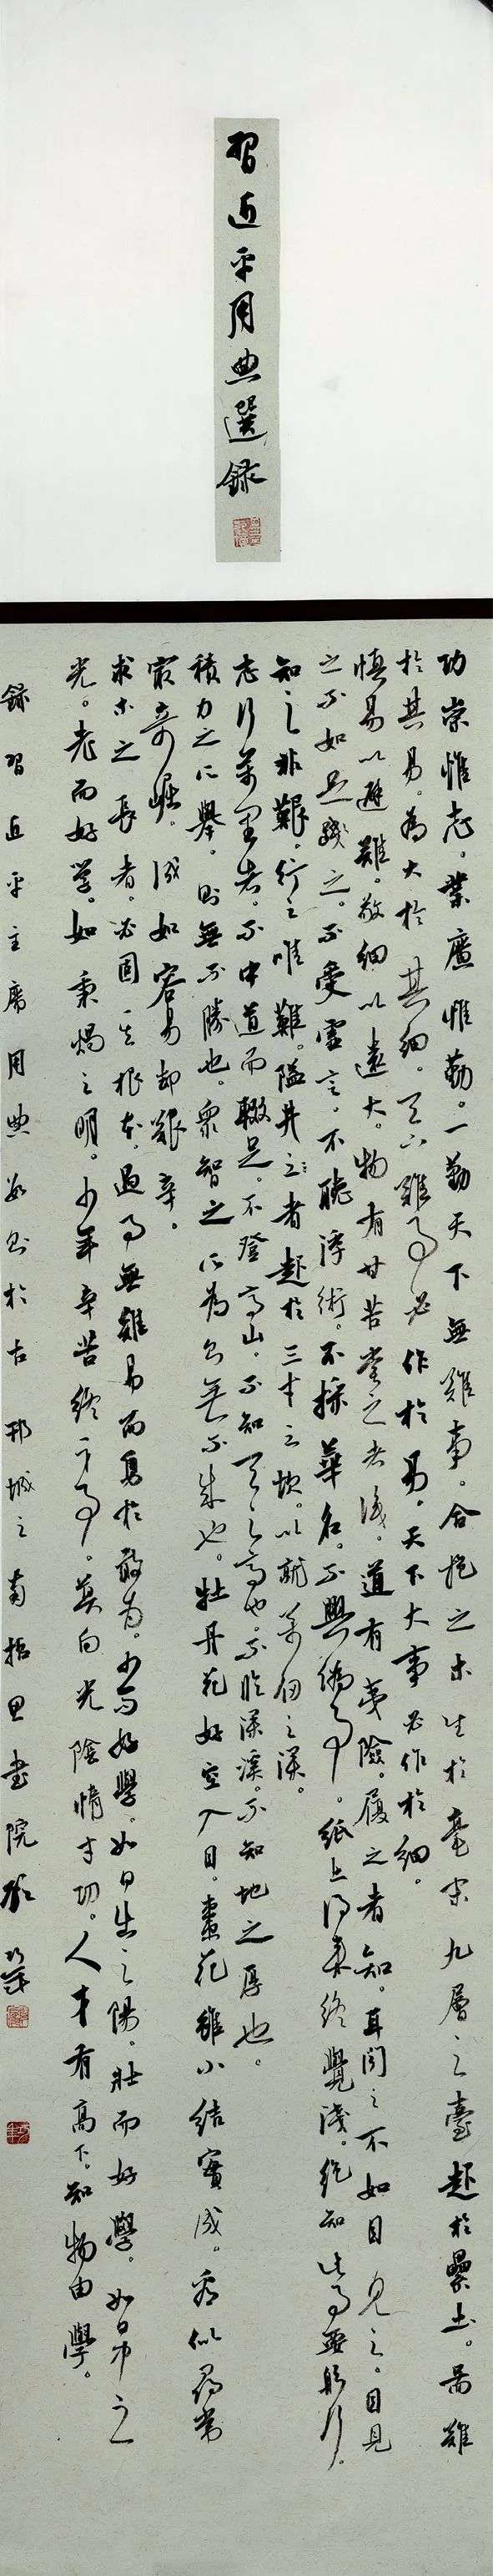 習近平用典選録
功崇惟志。業廣惟勤。一勤天下無難事。合抱之木生於毫末九層之臺起於壘土。圖難
於其易。為大於其細。天下難事必作於易。天下大事必作於細。
慎易以避難。敬細以遠大。物有甘苦嘗之者識。道有夷險。履之者知。耳聞之不如目見之。目見
之不如足踐之。不受虛言。不聽浮術。不採華名。不興偽事。紙上得來終覺淺。絕知此事要躬行。
知之非艱。行之唯難。隘井之者起於三寸之坎。以就萬仞之深。
志行萬里者。不中道而輟足。不登高山。不知天之高也。不臨深溪。不知地之厚也。
積力之所舉。則無不勝也。衆智之所為。則無不成也。牡丹花好空入目。棗花雖小結實成。看似尋常
最奇崛。成如容易却艱辛。
求木之長者。必固其根本。遇事無難易而勇於敢為。少而好學。如日出之陽。壯而好學。如日中之
光。老而好學。如秉燭之明。少年辛苦終事。莫向光陰惰寸功。人才有高下。知物由學。
録習近平主席用典於古邢城之南書院